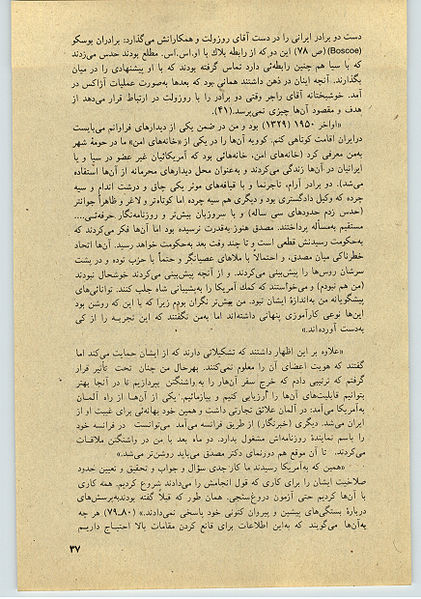 دست دو برادر ایرانی را در دست آقای روزولت و همکارانش می‌گذارد: برادران بوسکو
(Boscoe) (ص ۷۸) این دو که از رابطه بلاک با او.اس.اس. مطلع بودند حدس می‌زدند
که با سیا هم چنین رابطه‌ئی دارد تماس گرفته بودند که با او پیشنهادی را در میان
بگذارند. آنچه اینان در ذهن داشتند همانی بود که بعدها به‌صورت عملیات آژاکس در
آمد. خوشبختانه آقای راجر وقتی دو برادر را با روزولت در ارتباط قرار می‌دهد از
هدف و مقصود آن‌ها چیزی نمی‌پرسد.(۴۱)
«اواخر ۱۹۵۰ (۱۳۲۹) بود و من در ضمن یکی از دیدارهای فراوانم می‌بایست
درایران اقامت کوتاهی کنم. کووبه آن‌ها را در یکی از «خانه‌های امن» ما در حومهٔ شهر
به‌من معرفی کرد (خانه‌های امن، خانه‌هائی بود که آمریکائیان غیر عضو در سیا و یا
ایرانیان در آن‌ها زندگی می‌کردند و به‌عنوان محل دیدارهای محرمانه از آن‌ها استفاده
می‌شد). دو برادر آرام، تاجرنما و با قیافه‌های موثر یکی چاق و درشت اندام و سیه
چرده که وکیل دادگستری بود و دیگری هم سیه چرده اما کوتاه‌تر و لاغر و ظاهراً جوانتر
(حدس زدم حدودهای سی ساله) و با سروزبان بیش‌تر و روزنامه‌نگار حرفه‌ئی....
مستقیم به‌مسأله پرداختند. مصدق هنوز به‌قدرت نرسیده بود اما آن‌ها فکر می‌کردند که
به‌حکومت رسیدنش قطعی است و تا چند وقت بعد به‌حکومت خواهد رسید. آن‌ها اتحاد
خطرناکی میان مصدق، و احتمالا با ملاهای عصیانگر و حتماً با حزب توده و در پشت
سرشان روس‌ها را پیش‌بینی می‌کردند. و از آنچه پیش‌بینی می‌کردند خوشحال نبودند
(من هم نبودم) و می‌خواستند که کمک آمریکا را به‌پشتیبانی شاه جلب کنند. توانائی‌های
پیشگویانه من به‌اندازهٔ ایشان نبود. من بیش‌تر نگران بودم زیرا که با این که روشن بود
این‌ها نوعی کارآموزی پنهانی داشته‌اند اما به‌من نگفتند که این تجربه را از کی
به‌دست آورده‌اند.»
«علاوه بر این اظهار داشتند که تشکیلاتی دارند که از ایشان حمایت می‌کند اما
گفتند که هویت اعضای آن را معلوم نمی‌کنند. بهرحال من چنان تحت تأثیر قرار
گرفتم که ترتیبی دادم که خرج سفر آن‌ها را به واشنگتن بپردازیم تا در آنجا بهتر
بتوانیم قابلیت‌های آن‌ها را ارزیابی کنیم و بیازمائیم. یکی از آن‌ها از راه آلمان
به‌آمریکا می‌آمد: در آلمان علائق تجارتی داشت و همین خود بهانه‌ئی برای غیبت او از
ایران می‌شد. دیگری (خبرنگار) از طریق فرانسه می‌آمد می‌توانست در فرانسه خود
را باسم نمایندهٔ روزنامه‌اش مشغول بدارد. دو ماه بعد با من در واشنگتن ملاقات
می‌کردند. تا آن موقع هم دورنمای دکتر مصدق می‌باید روشن‌تر می‌شد.»
«همین که به‌آمریکا رسیدند ما کار جدی سؤال و جواب و تحقیق و تعیین حدود
صلاحیت ایشان را برای کاری که قول انجامش را می‌دادند شروع کردیم. همه کاری
با آن‌ها کردیم حتی آزمون دروغ‌سنجی. همان طور که قبلا گفته بودند به‌پرسش‌های
دربارهٔ بستگی‌های پیشین و پیروان کنونی خود پاسخی نمی‌دادند.» (۸۰ـ۷۹) هر چه
به‌آن‌ها می‌گویند که به‌این اطلاعات برای قانع کردن مقامات بالا احتیاج داریم
۳۷